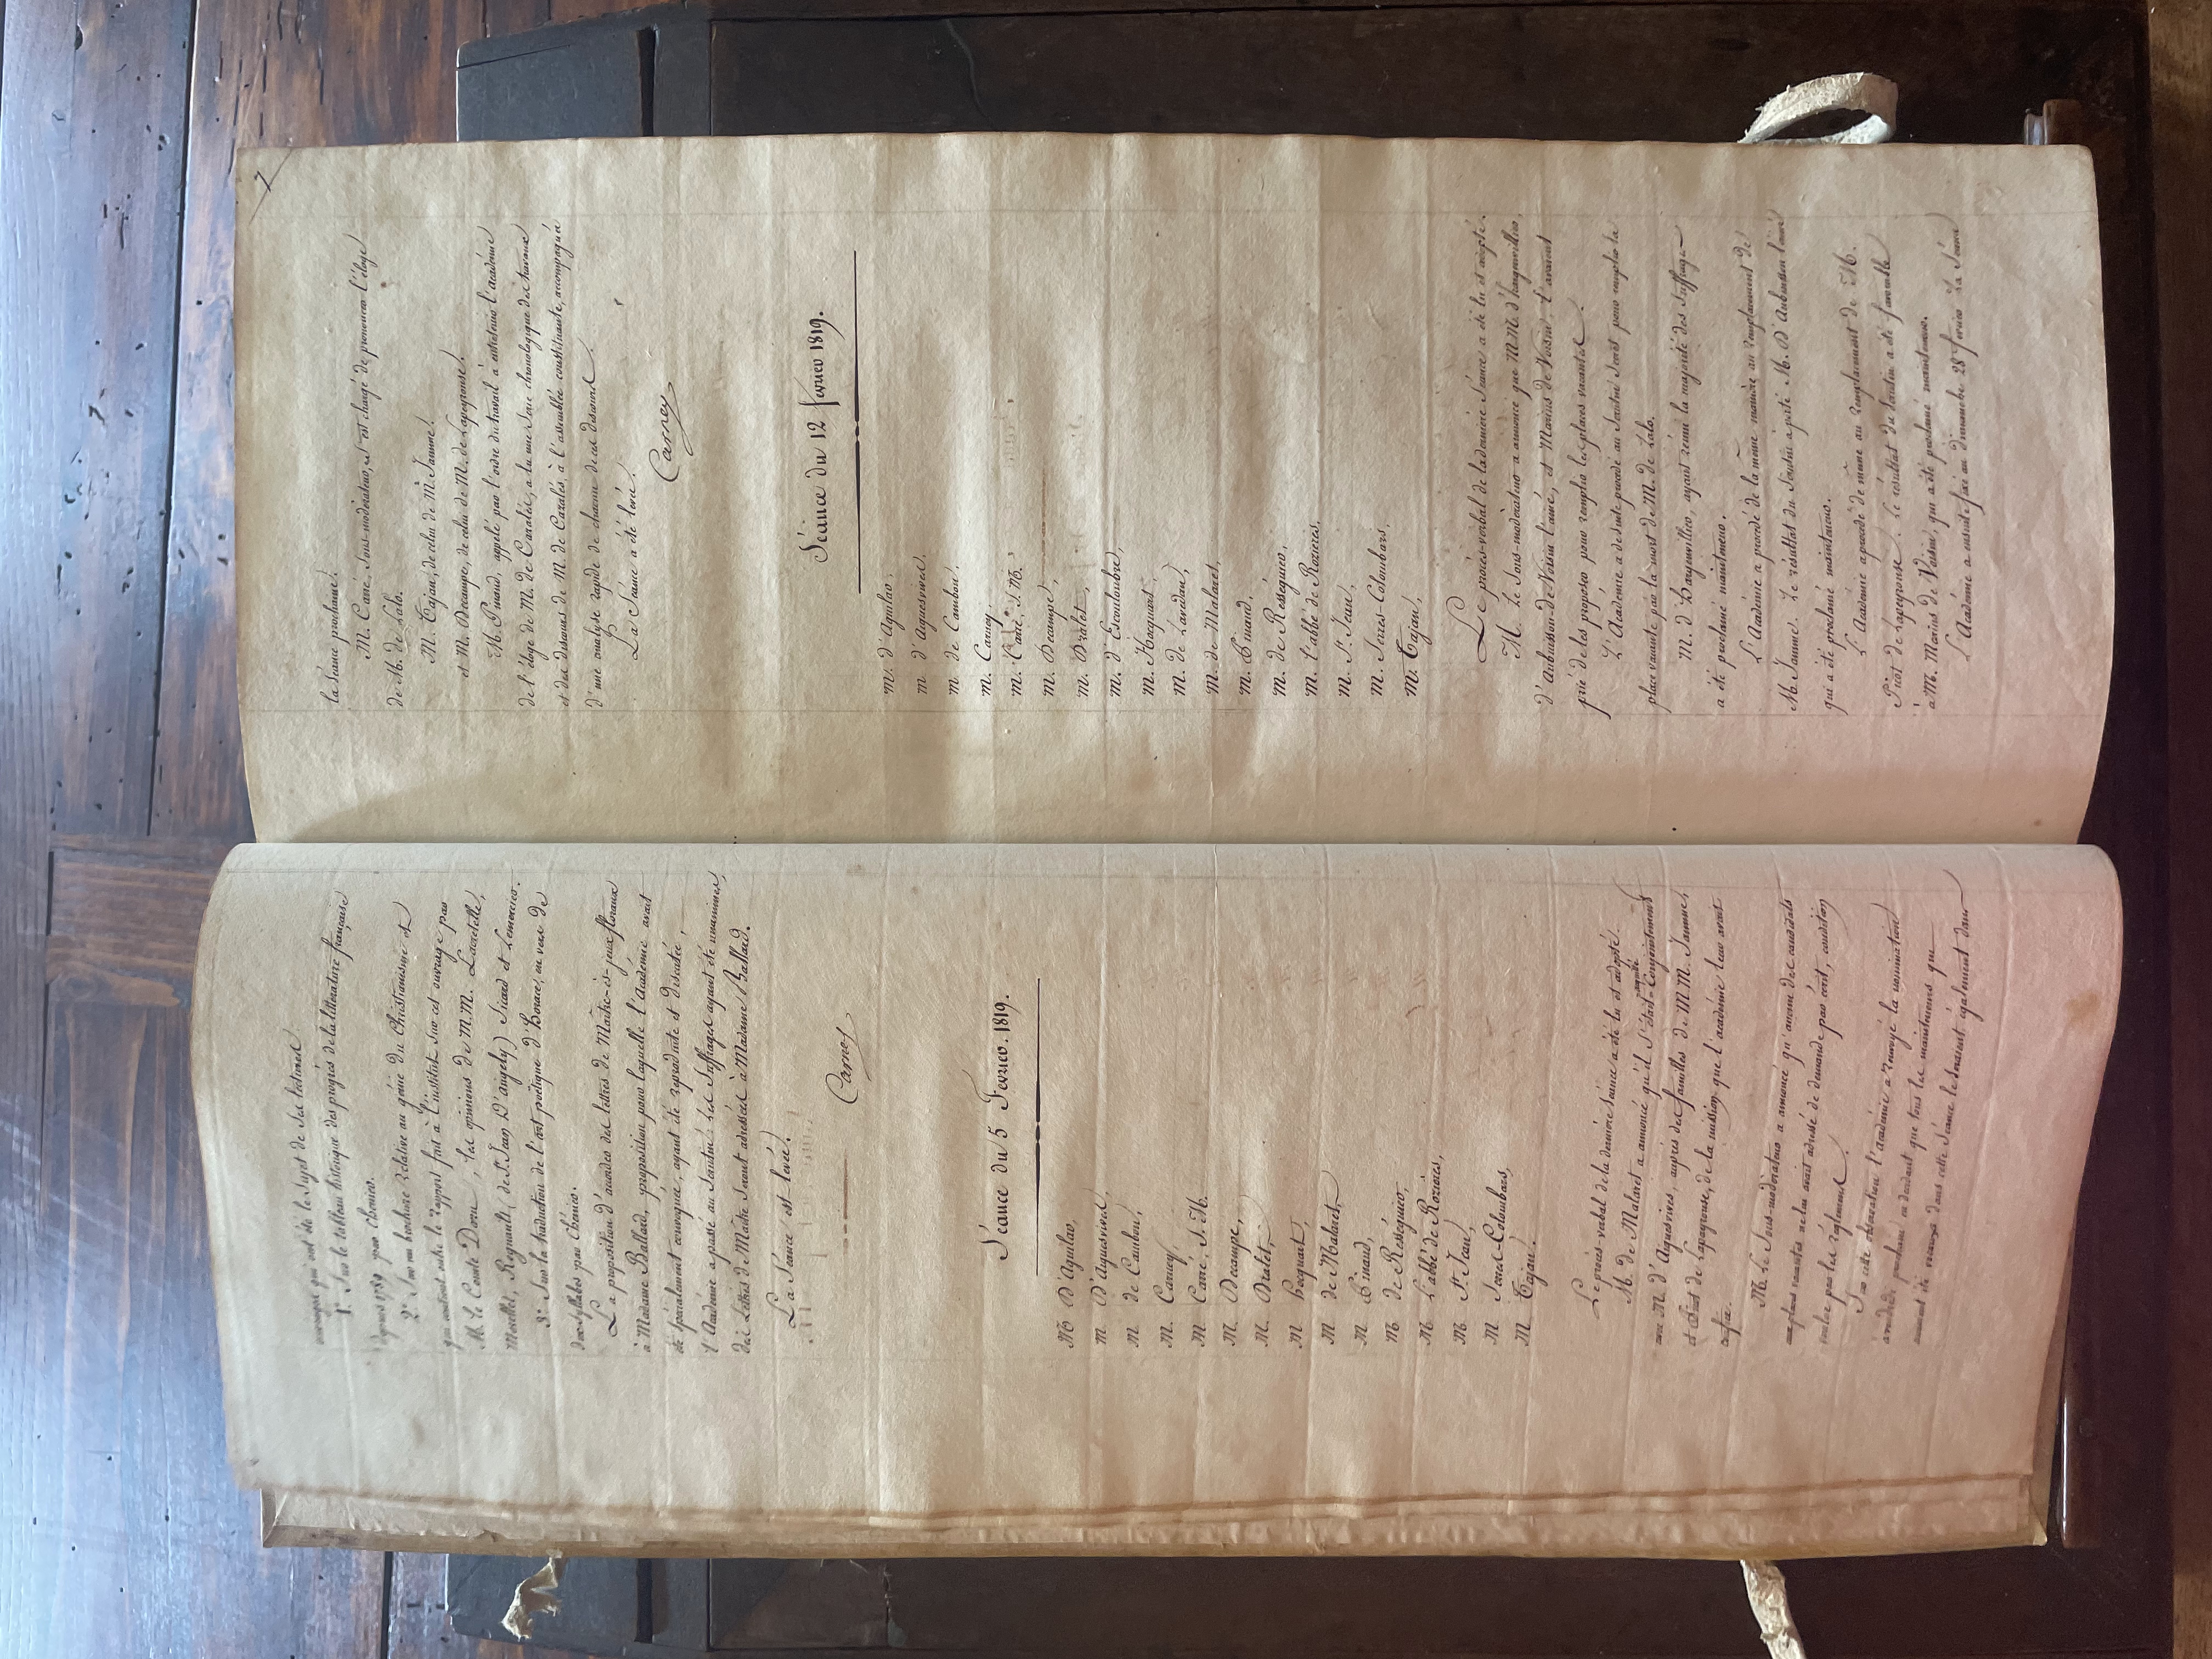 ouvrages qui ont été le sujet de ses lectures
1.° Sur le tableau historique des progrès de la littérature française
depuis 1789 par Chénier.
2.° Sur une brochure relative au génie du Christianisme et
qui contient outre le rapport fait à l'institut sur cet ouvrage par
M. le Comte Daru, les opinions de M.M. Lacretelle,
Morellet, Regnault (de St. Jean D'angely) Sicard et Lemercier.
3.° Sur la traduction de l'art poétique d'Horace, en vers de
dix syllabes par Chénier.
La proposition d'accorder des lettres de Maître-ès-jeux floraux
à Madame Balard, proposition pour laquelle l'Académie avait
été spécialement convoquée, ayant été reproduite et discutée,
l'Académie a passé au Scrutin. Les Suffrages ayant été unanimes,
des Lettres de Maître seront adressées à Madame Ballard.
La Séance est levée.
Carney
Séance du 5 Fevrier. 1819.
M D'Aguilar,
M D'Aiguesvives,
M de Cambon,
M. Carney,
M. Carré, S. M.
M. Decampe,
M. Dralet,
M hocquart,
M de Malaret,
M Pinaud,
M de Rességuier,
M L'abbé de Rozieres,
M St. Jean,
M Serres-Colombars,
M Tajan.
Le procès-verbal de la dernière Séance a été lu et adopté.
M. de Malaret a annoncé qu'il s'était acquitté Conjointement
avec M. D'Aiguevives, auprès des familles de M.M. Jamme,
et Picot de Lapeyrouse, de la mission que l'académie leur avait
confiée.
M. le Sous-modérateur a annoncé qu'aucun des candidats
aux places vacantes ne lui avait adressé de demande par écrit, condition
voulue par les réglemens.
Sur cette observation l'académie a renvoyé la nomination
à vendredi prochain en décidant que tous les mainteneurs qui
auront été reçus dans cette Séance le seraient également dans
7
la séance prochaine.
M. Carré, Sous-modérateur, est chargé de prononcer l'éloge
de M. de Lalo.
M. Tajan, de celui de M. Jamme.
et M. Decampe, de celui de M. de Lapeyrouse.
M. Pinaud, appelé par l'ordre du travail à entretenir l'académie
de l'éloge de M. de Cazalès, a lu une série chronologique des travaux
et des discours de M. de Cazalès, à l'assemblée constituante, accompagnée
d'une analyse rapide de chacun de ces discours.
La Séance a été levée.
Carney
Séance du 12 fevrier 1819.
M. d'Aguilar,
M d'Aiguesvives,
M de Cambon,
M. Carney,
M. Carré, S. M.
M. Decampe,
M. Dralet,
M. d'Escouloubre,
M. Hocquart,
M. de Lavedan,
M. de Malaret,
M. Pinaud,
M. de Rességuier,
M. l'abbé de Rozieres,
M. St. Jean,
M. Serres-Colombars,
M. Tajan,
Le procès-verbal de la dernière Séance a été lu et adopté.
M. le Sous-modérateur a annoncé que M.M. d'hargenvillier,
d'Aubuisson-de Voisin l'aîné, et Marius de Voisin, l'avaient
prié de les proposer pour remplir les places vacantes.
L'Académie a de suite procédé au Scrutin Secret pour remplir la
place vacante par la mort de M. de Lalo.
M. d'Hargenvillier, ayant réuni la majorité des Suffrages
a été proclamé mainteneur.
L'Académie a procédé de la même manière au remplacement de
M. Jamme. Le résultat du Scrutin a porté M. D'Aubuisson l'aîné
qui a été proclamé mainteneur.
L'Académie a procédé de même au remplacement de M.
Picot de Lapeyrouse. Le résultat du Scrutin a été favorable
à M. Marius de Voisin, qui a été proclamé mainteneur.
L'Académie a ensuite fixé au dimanche 28 fevrier la Séance